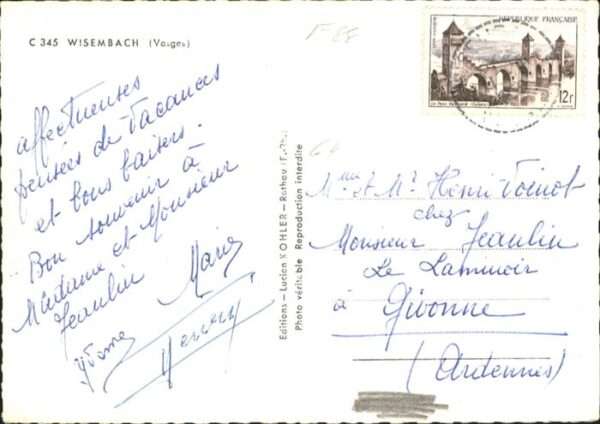 C 345 WISEMBACH (Vosges)
affectueuses
pensées de vacances
et bons baisers.
Bon souvenir à
Madame et Monsieur
Jeaulin Marie
Yvonne
Editions - Lucien KOHLER - Rothau
Photo véritable Reproduction interdite
RÉPUBLIQUE FRANÇAISE
12F
Mme et Mr Henri Voinot
chez
Monsieur Jeaulin
Le Laminoir
à Givonne
(Ardennes)